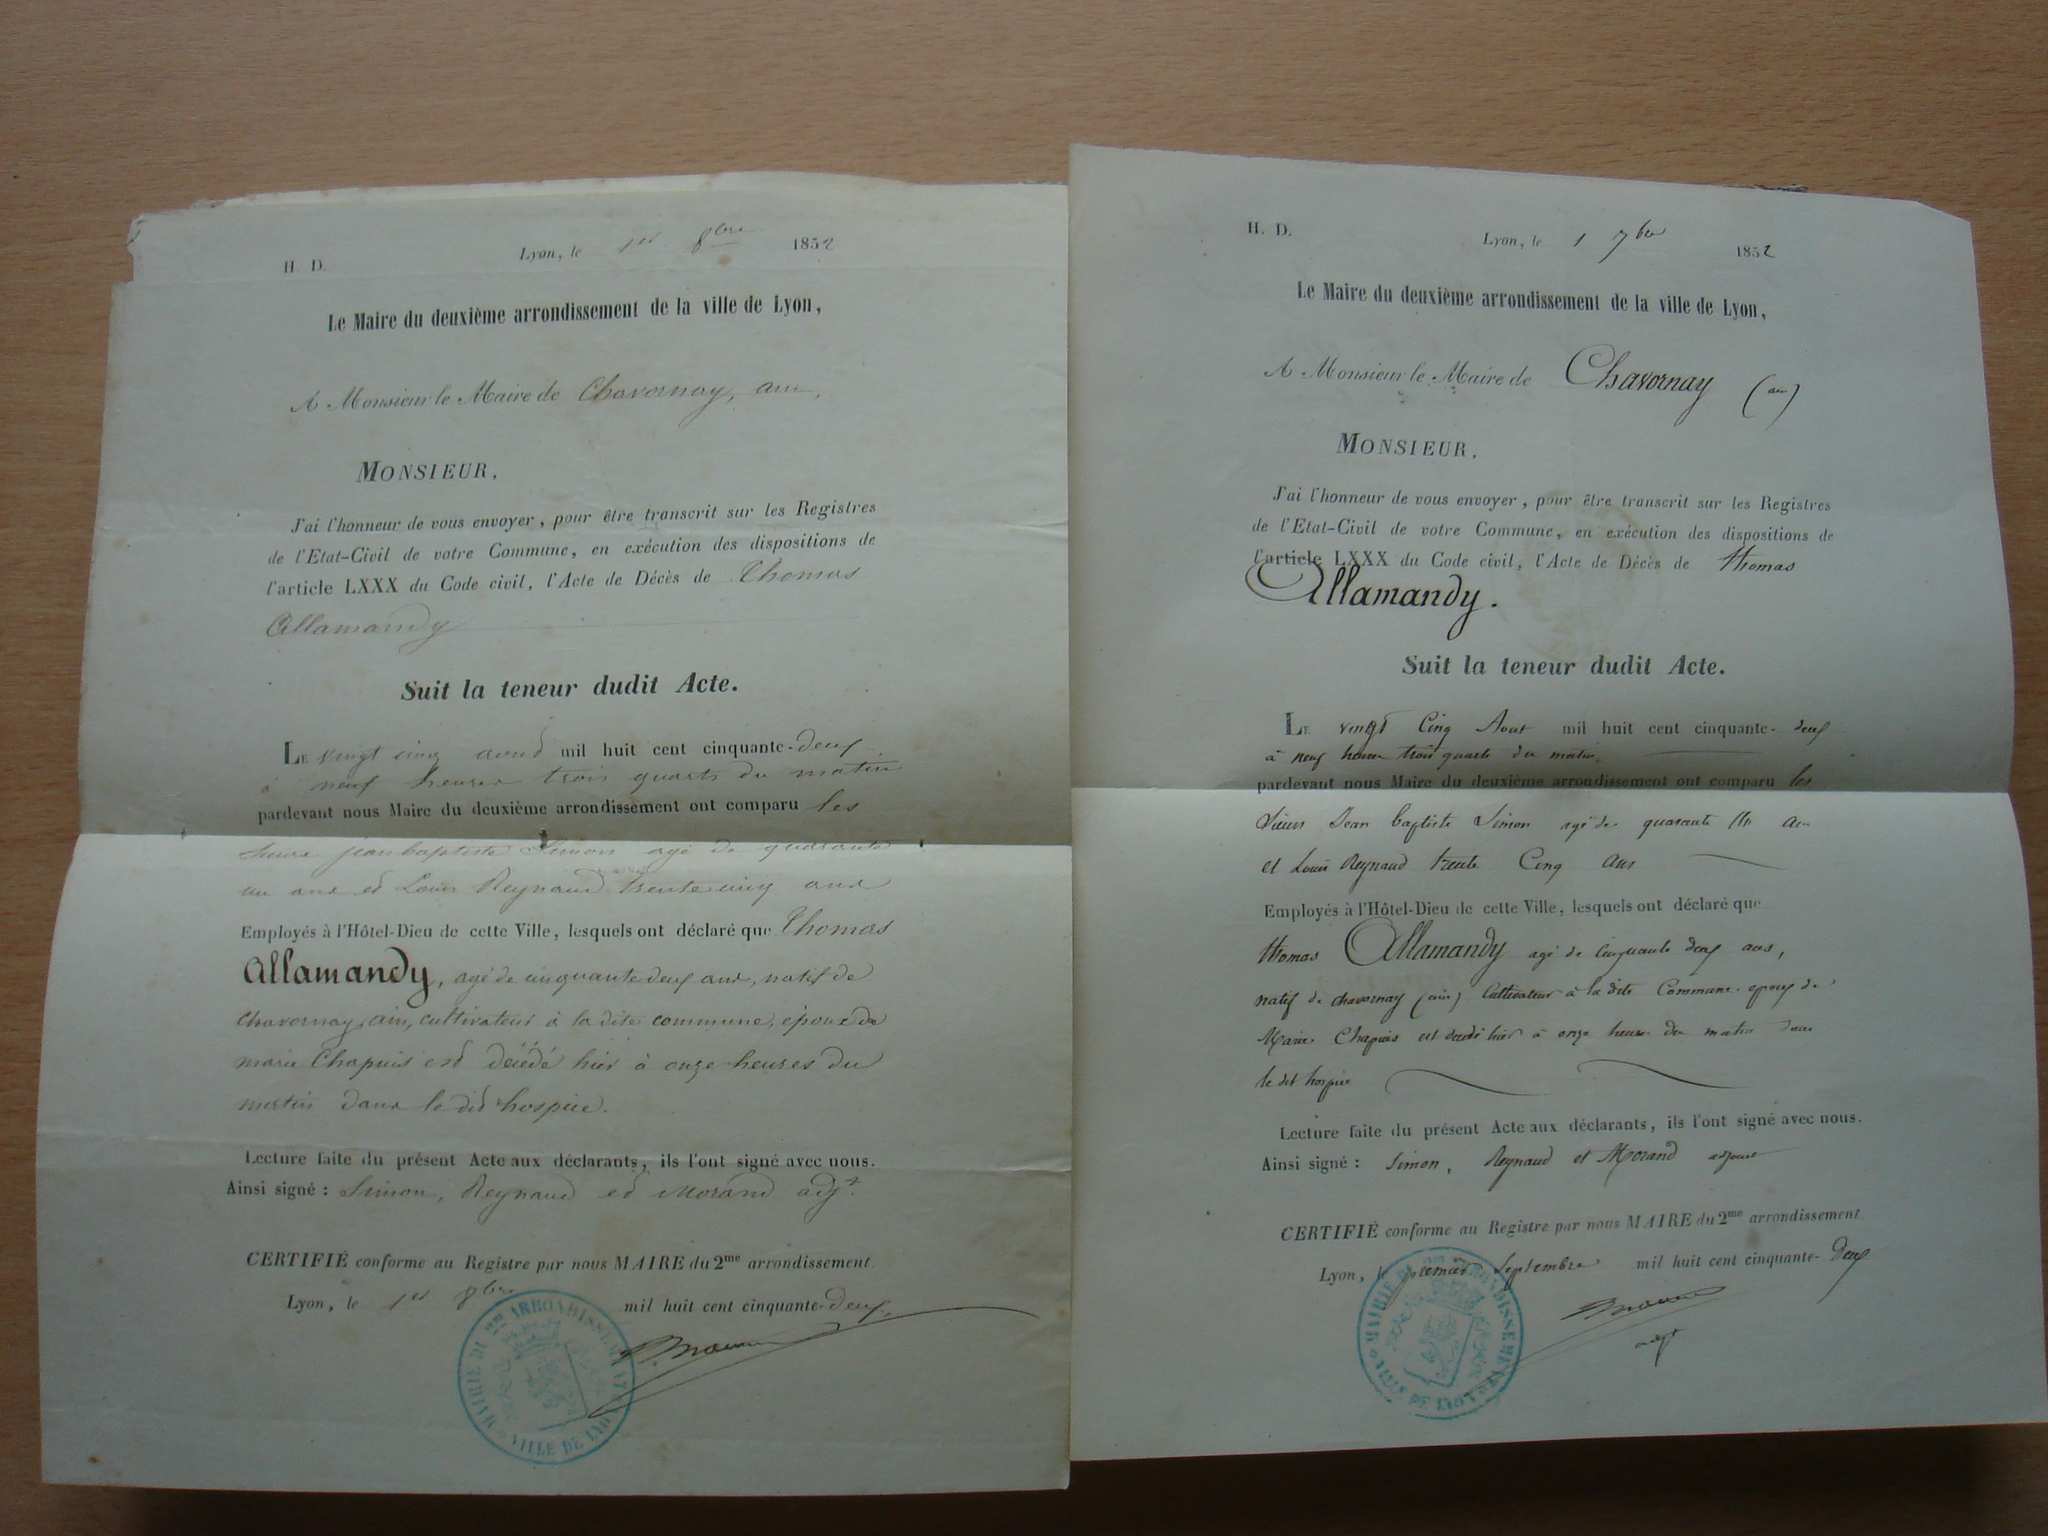 H. D.
Lyon, le 1er 8bre 1852
Le Maire du deuxième arrondissement de la ville de Lyon,
A Monsieur le Maire de Chavornay, ain,
MONSIEUR,
J'ai l'honneur de vous envoyer, pour être transcrit sur les Registres
de l'Etat-Civil de votre Commune, en exécution des dispositions de
l'article LXXX du Code civil, l'Acte de Décès de Thomas
Allamandy
Suit la teneur dudit Acte.
LE vingt cinq aout mil huit cent cinquante-deux
à neuf heures trois quarts du matin
pardevant nous Maire du deuxième arrondissement ont comparu les
sieurs jean baptiste Simon agé de quarante
un ans et Louis Reynaud trente cinq ans
Employés à l'Hôtel-Dieu de cette Ville, lesquels ont déclaré que Thomas
Allamandy, agé de cinquante deux ans, natif de
chavornay, ain, cultivateur à la dite commune, époux de
marie Chapuis est décédé hier à onze heures du
matin dans le dit hospice.
Lecture faite du présent Acte aux déclarants, ils l'ont signé avec nous.
Ainsi signé : Simon, Reynaud et Morand adjt.
CERTIFIÉ conforme au Registre par nous MAIRE du 2me arrondissement
Lyon, le 1er 8bre mil huit cent cinquante-deux
MAIRIE DU 2me ARRONDISSEMENT
VILLE DE LYON
H. D.
Lyon, le 1 7bre 1852
Le Maire du deuxième arrondissement de la ville de Lyon,
A Monsieur le Maire de Chavornay (ain)
MONSIEUR,
J'ai l'honneur de vous envoyer, pour être transcrit sur les Registres
de l'Etat-Civil de votre Commune, en exécution des dispositions de
l'article LXXX du Code civil, l'Acte de Décès de Thomas
Allamandy.
Suit la teneur dudit Acte.
LE vingt Cinq Aout mil huit cent cinquante-deux
à neuf heures trois quarts du matin,
pardevant nous Maire du deuxième arrondissement ont comparu les
Sieurs Jean baptiste Simon agé de quarante un ans
et Louis Reynaud trente Cinq ans
Employés à l'Hôtel-Dieu de cette Ville, lesquels ont déclaré que
Thomas Allamandy agé de cinquante deux ans,
natif de chavornay (ain) Cultivateur à la dite Commune époux de
Marie Chapuis est décédé hier à onze heures du matin dans
le dit hospice
Lecture faite du présent Acte aux déclarants, ils l'ont signé avec nous.
Ainsi signé : Simon, Reynaud et Morand adjoint
CERTIFIÉ conforme au Registre par nous MAIRE du 2me arrondissement
Lyon, le premier Septembre mil huit cent cinquante-Deux
adjt
MAIRIE DU 2me ARRONDISSEMENT
VILLE DE LYON